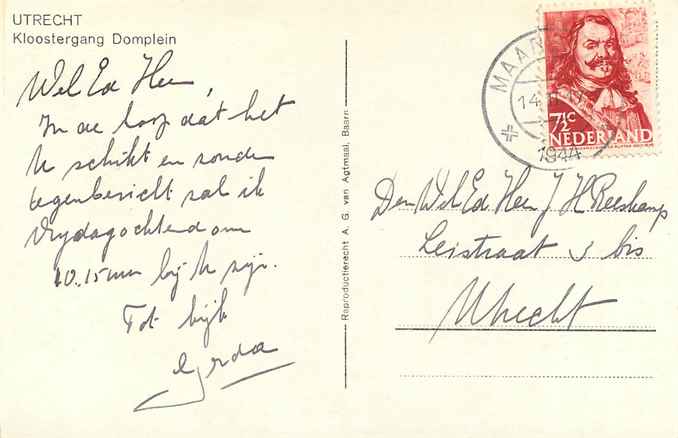 UTRECHT
Kloostergang Domplein
Wel Ed Heer,
In de hoop dat het
U schikt en zonder
tegenbericht zal ik
Vrydagochtend om
10.15 uur bij U zijn.
Tot kijk
Gerda
Reproductierecht A. G. van Agtmaal, Baarn
MAARN
14
1944
7½c
NEDERLAND
Den Wel Ed. Heer J H Reeskamp
Leistraat 3 bis
Utrecht